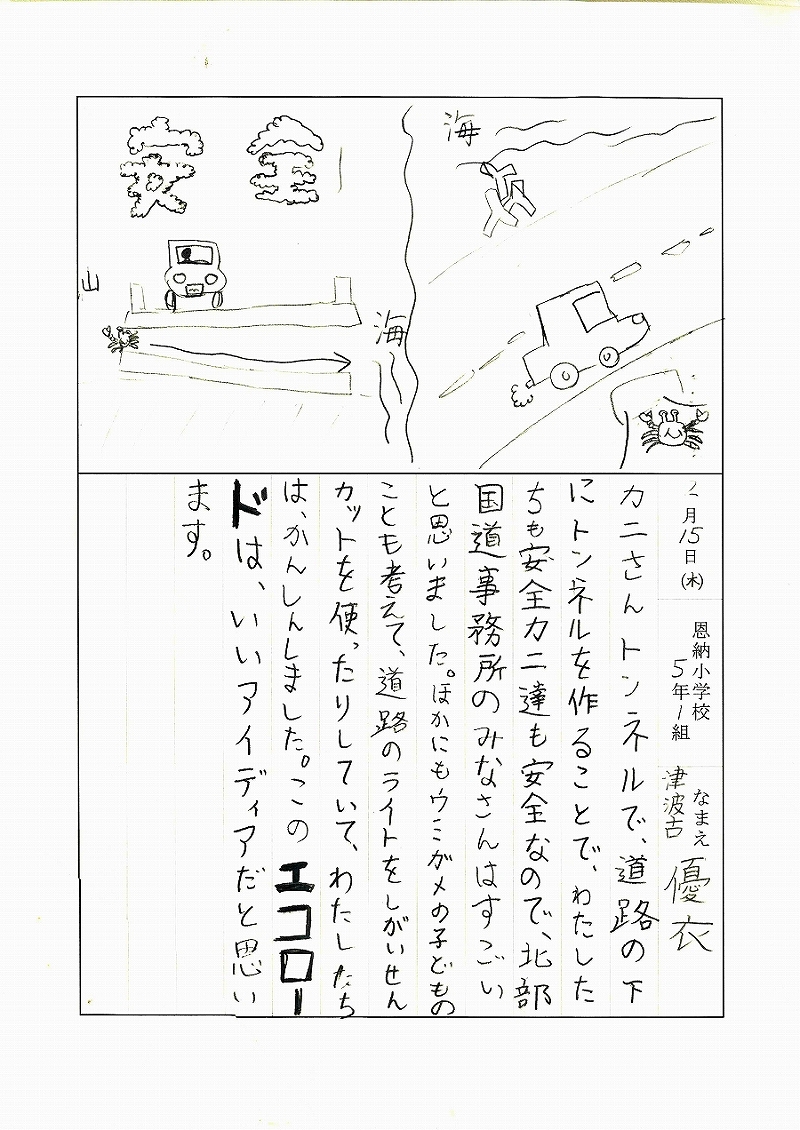 安全
海
山
海
月15日(木)
恩納小学校
5年1組
なまえ
津波古 優衣
カニさんトンネルで、道路の下
にトンネルを作ることで、わたした
ちも安全カニ達も安全なので、北部
国道事務所のみなさんはすごい
と思いました。ほかにもウミガメの子どもの
ことも考えて、道路のライトをしがいせん
カットを使ったりしていて、わたしたち
は、かんしんしました。このエコロー
ドは、いいアイディアだと思い
ます。